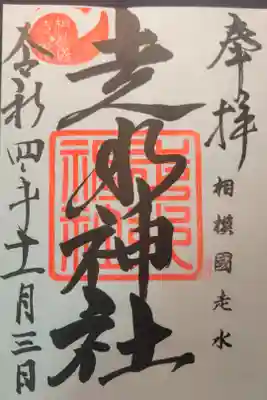 奉拝
相模國走水
走水神社
令和四年十一月三日